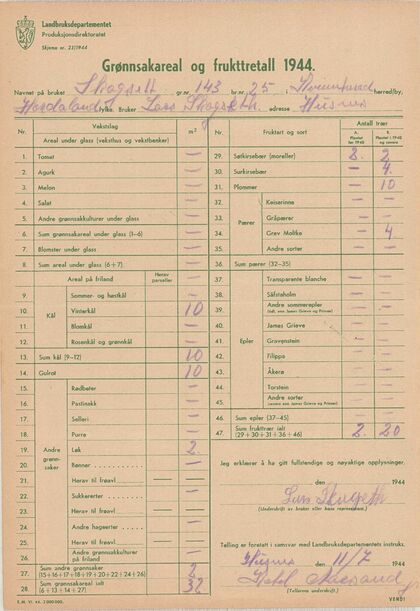 Landbruksdepartementet
Produksjonsdirektoratet
Skjema nr. 23/1944
Grønnsakareal og frukttretall 1944.
Navnet på bruket Skogsett gr.nr. 143 br.nr. 25 i herred/by,
Hordaland fylke. Bruker Lars adresse Husnes
Nr. Vekstslag m²
Areal under glass (veksthus og vekstbenker)
1. Tomat —
2. Agurk —
3. Melon —
4. Salat —
5. Andre grønnsakkulturer under glass —
6. Sum grønnsakareal under glass (1–6) —
7. Blomster under glass —
8. Sum areal under glass (6+7) —
Areal på friland Herav parseller
Kål
9. Sommer- og høstkål —
10. Vinterkål 10
11. Blomkål —
12. Rosenkål og grønnkål —
13. Sum kål (9–12) 10
14. Gulrot 10
Andre grønnsaker
15. Rødbeter —
16. Pastinakk —
17. Selleri —
18. Purre —
19. Løk 2
20. Bønner —
21. Herav til frøavl —
22. Sukkererter —
23. Herav til frøavl —
24. Andre hageerter —
25. Herav til frøavl —
26. Andre grønnsakkulturer på friland —
27. Sum andre grønsaker (15+16+17+18+19+20+22+24+26) 2
28. Sum grønnsakareal ialt (6+13+14+27) 32
E.M. VI. 44. 3 000 000.
Nr. Fruktart og sort Antall trær
A. Plantet før 1940 B. Plantet i 1940 og senere
29. Søtkirsebær (moreller) 2. 2
30. Surkirsebær — 4.
31. Plommer — 10
Pærer
32. Keiserinne — —
33. Gråpærer — —
34. Grev Moltke — 4
35. Andre sorter — —
36. Sum pærer (32–35)
Epler
37. Transparente blanche — —
38. Säfstaholm — —
39. Andre sommerepler — —
40. James Grieve — —
41. Gravenstein — —
42. Filippa — —
43. Åkerø — —
44. Torstein — —
45. Andre sorter — —
46. Sum epler (37–45) — —
47. Sum frukttrær ialt (29+30+31+36+46) 2. 20
Jeg erklærer å ha gitt fullstendige og nøyaktige opplysninger.
1944
Lars
(Underskrift av bruker eller hans representant).
Telling er foretatt i samsvar med Landbruksdepartementets instruks.
Husnes 11/7 1944
Tellerens underskrift.
VEND!